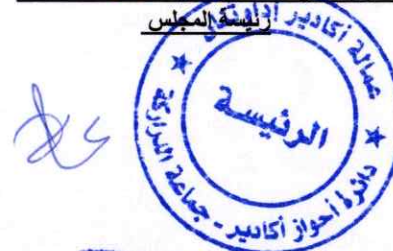 رئيسة المجلس
عمالة أكادير إداوتنان
الرئيسة
دائرة أحواز أكادير - جماعة الدراركة